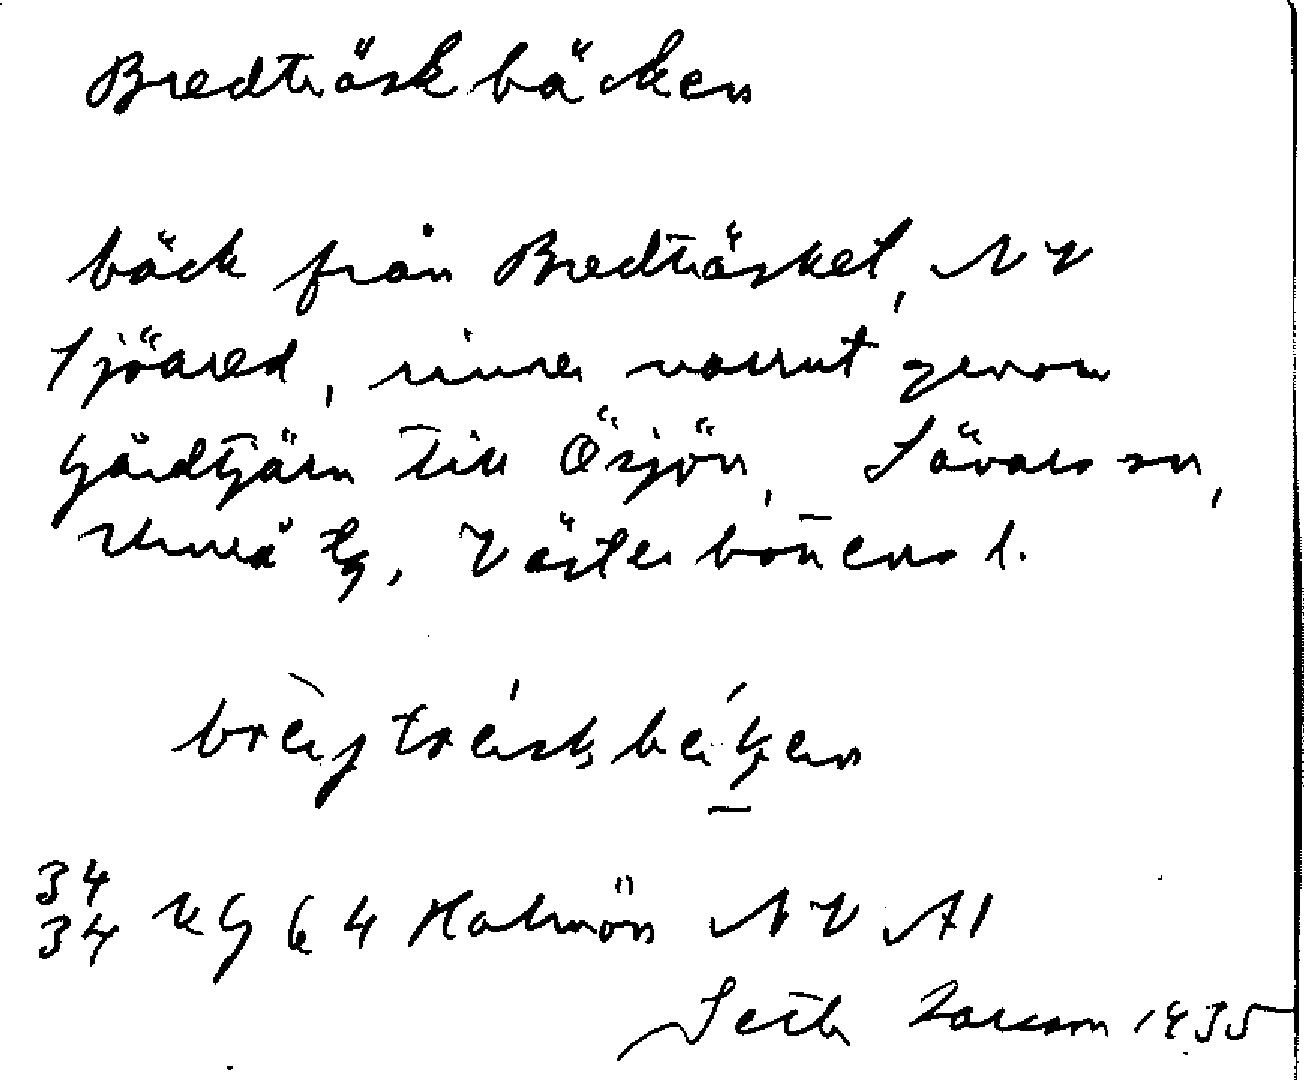 Bredträskbäcken
bäck från Bredträsket, NV
Sjöared, rinner norrut genom
Gårdtjärn till Ösjön, Sävars sn,
Umeå tg, Västerbottens l.
34
34 KG 64 Holmön NV A1
Seth Larsson 1935